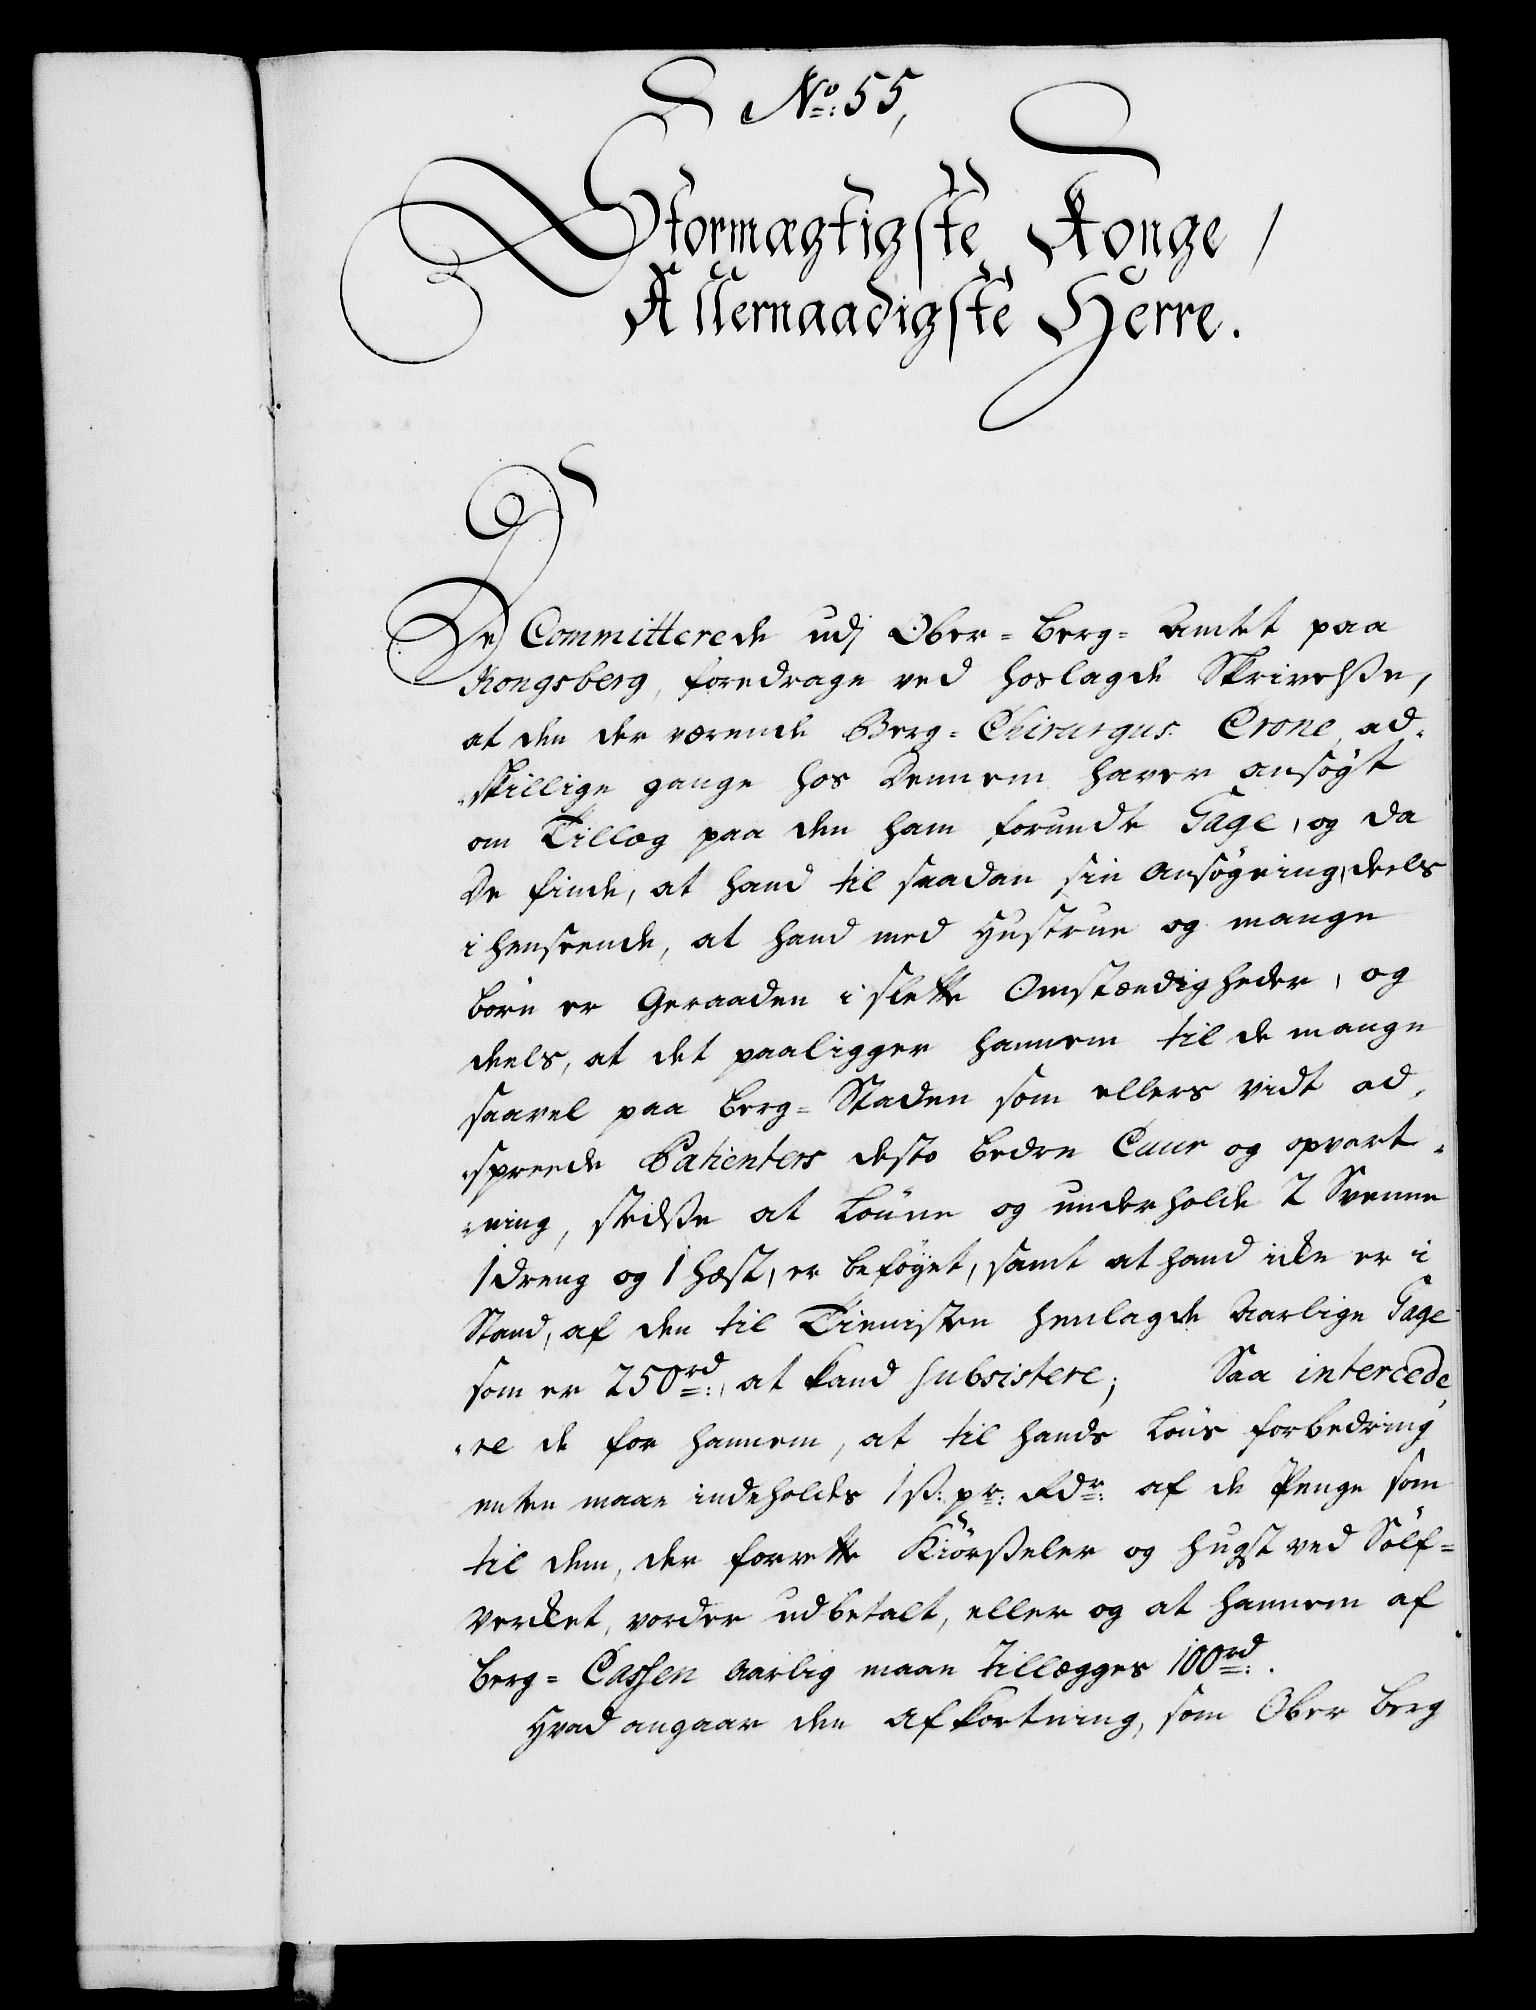 No: 55,
Stormægtigste Konge /
Allernaadigste Herre.
De Committerede udj Ober-Berg-Amtet paa
Kongsberg, foredrage ved hoslagde Skrivelsse,
at den der værende Berg-Chirurgus Crone, ad-
skillige gange hos Dennem haver ansøgt
om Tillæg paa den ham forundte Gage, og da
De finde, at hand til saadan sin Ansøgning, deels
i henseende, at hand med Hustrue og mange
børn er Geraaden i slette Omstændigheder, og
deels, at det paaligger hannem til de mange
saavel paa Berg-Staden som ellers vidt ad-
spreede Patienters desto bedre Cuur og opvart-
ning, stedsse at Lönne og underholde 2 Svenne
1 dreng og 1 hæst, er beföyet, samt at hand icke er i
Stand, af den til Tienisten henlagde Aarlige Gage
som er 250 rd:, at kand subsistere; Saa intercede
re de for hannem, at til hands Löns forbedring
enten maae indeholdes 1 ß: pr: Rdr: af de Penge som
til dem, der forrette Kiörsseler og hugst ved Sölf-
verket, vorder udbetalt, eller og at hannem af
Berg-Cassen Aarlig maae tillægges 100 rd:.
Hvad angaar den Afkortning, som Ober Berg